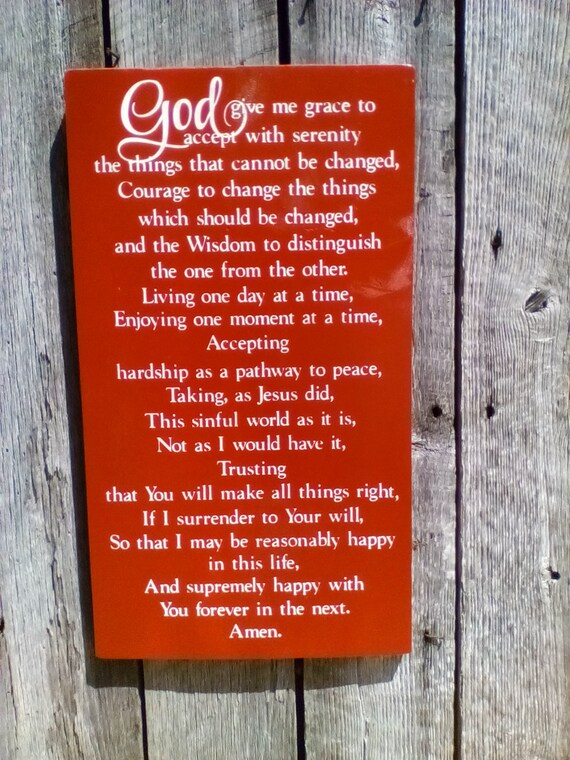 God give me grace to
accept with serenity
the things that cannot be changed,
Courage to change the things
which should be changed,
and the Wisdom to distinguish
the one from the other.
Living one day at a time,
Enjoying one moment at a time,
Accepting
hardship as a pathway to peace,
Taking, as Jesus did,
This sinful world as it is,
Not as I would have it,
Trusting
that You will make all things right,
If I surrender to Your will,
So that I may be reasonably happy
in this life,
And supremely happy with
You forever in the next.
Amen.